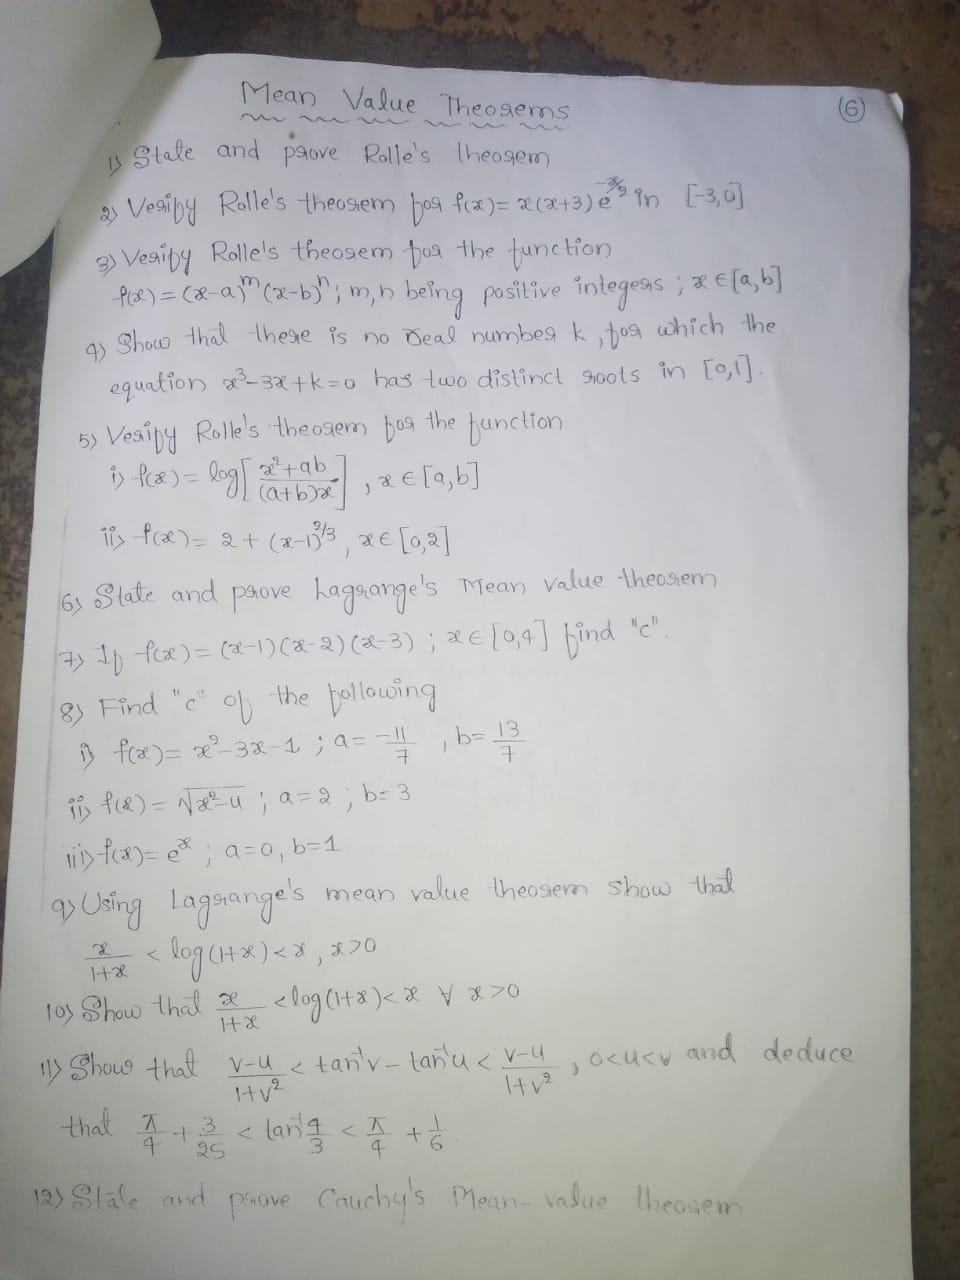 Mean Value Theorems
(6)
1) State and prove Rolle's theorem
2) Verify Rolle's theorem for f(x) = x(x+3)e^{-x/2} in [-3,0]
3) Verify Rolle's theorem for the function
f(x) = (x-a)^m (x-b)^n ; m,n being positive integers ; x ∈ [a,b]
4) Show that there is no real number k, for which the
equation x³-3x+k=0 has two distinct roots in [0,1].
5) Verify Rolle's theorem for the function
i) f(x) = log[(x²+ab)/((a+b)x)], x ∈ [a,b]
ii) f(x) = 2 + (x-1)^{2/3}, x ∈ [0,2]
6) State and prove Lagrange's Mean value theorem
7) If f(x) = (x-1)(x-2)(x-3) ; x ∈ [0,4] find "c".
8) Find "c" of the following
i) f(x) = x²-3x-1 ; a = -11/7, b = 13/7
ii) f(x) = √(x²-4) ; a=2 ; b=3
iii) f(x) = e^x ; a=0, b=1
9) Using Lagrange's mean value theorem show that
x/(1+x) < log(1+x) < x, x>0
10) Show that x/(1+x) < log(1+x) < x ∀ x>0
11) Show that (v-u)/(1+v²) < tan⁻¹v - tan⁻¹u < (v-u)/(1+v²), 0<u<v and deduce
that π/4 + 3/25 < tan⁻¹ 4/3 < π/4 + 1/6
12) State and prove Cauchy's Mean-value theorem